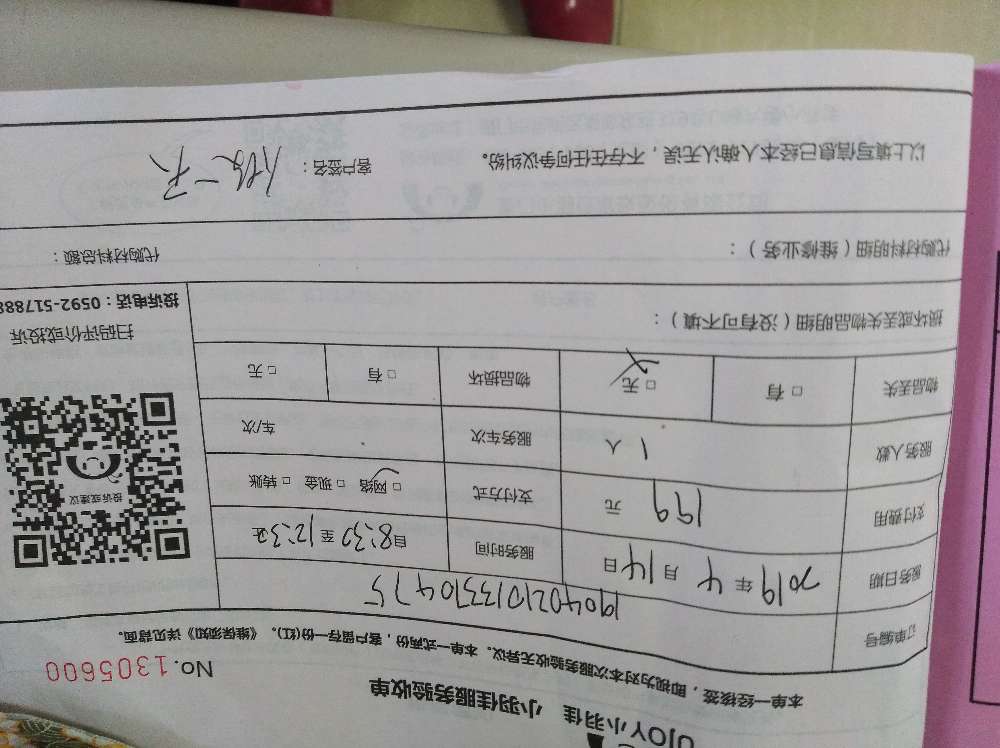 UJOY小羽佳 小羽佳服务验收单
No. 1305600
本单一经核签，即视为对本次服务验收无异议。本单一式两份，客户留存一份(红)。《维保须知》详见背面。
订单编号 1904021013370475
服务日期 2019年4月14日 服务时间 自8:30至12:30
支付费用 199元 支付方式 □网络 □现金 □转账
服务人数 1人 服务车次 车/次
物品丢失 □有 □无 物品损坏 □有 □无
投诉或建议
扫码评价或投诉
投诉电话：0592-517888
损坏或丢失物品明细（没有可不填）：
代购材料明细（维修业务）： 代购材料总额：
以上填写信息已经本人确认无误，不存在任何争议纠纷。 客户签名：